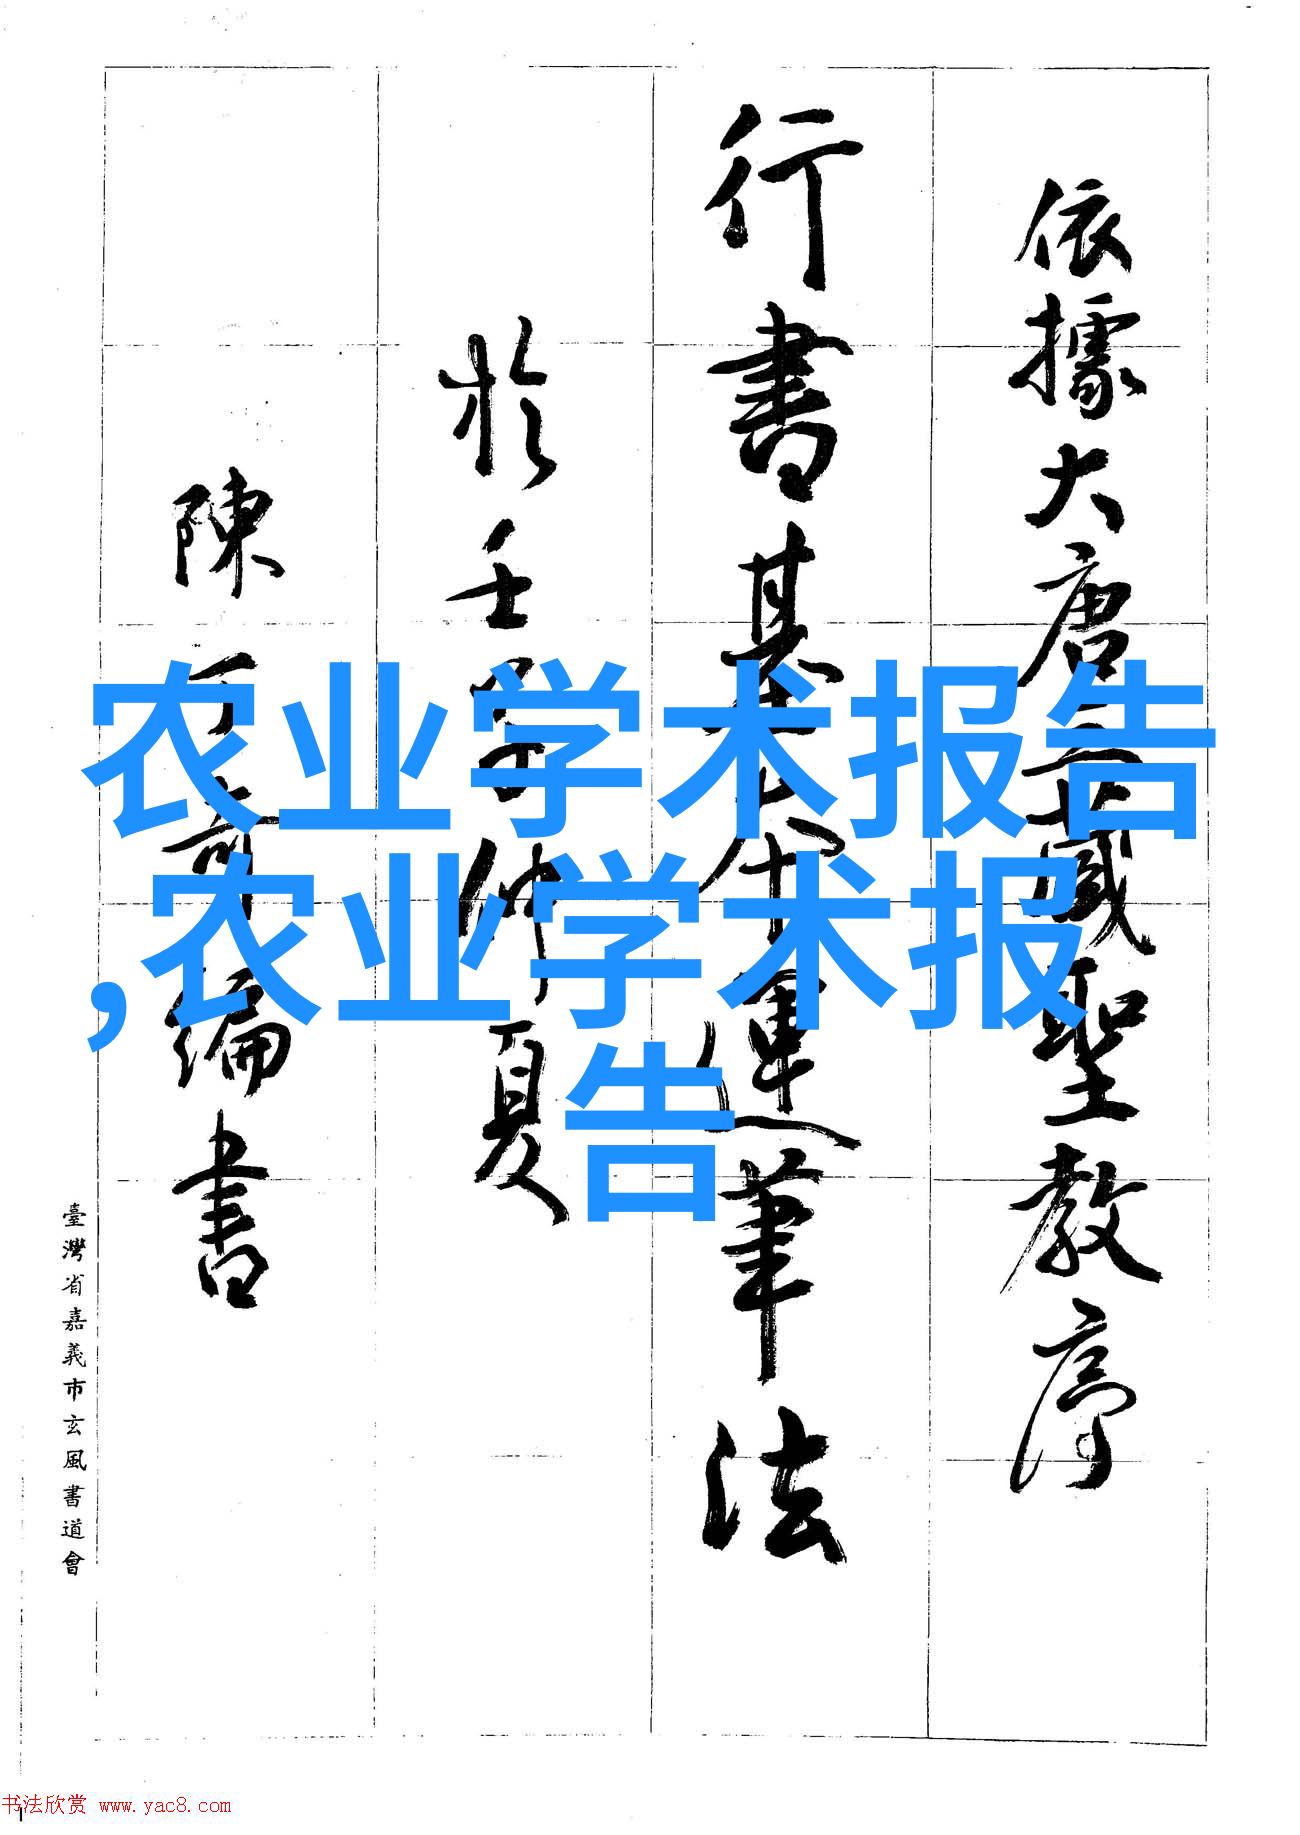 依據大唐三藏聖教序
行書基本運筆法
於壬子仲夏
陳丁奇編書
臺灣省嘉義市玄風書道會
农业学术报告
,农业学术报
告
书法欣赏 www.yac8.com